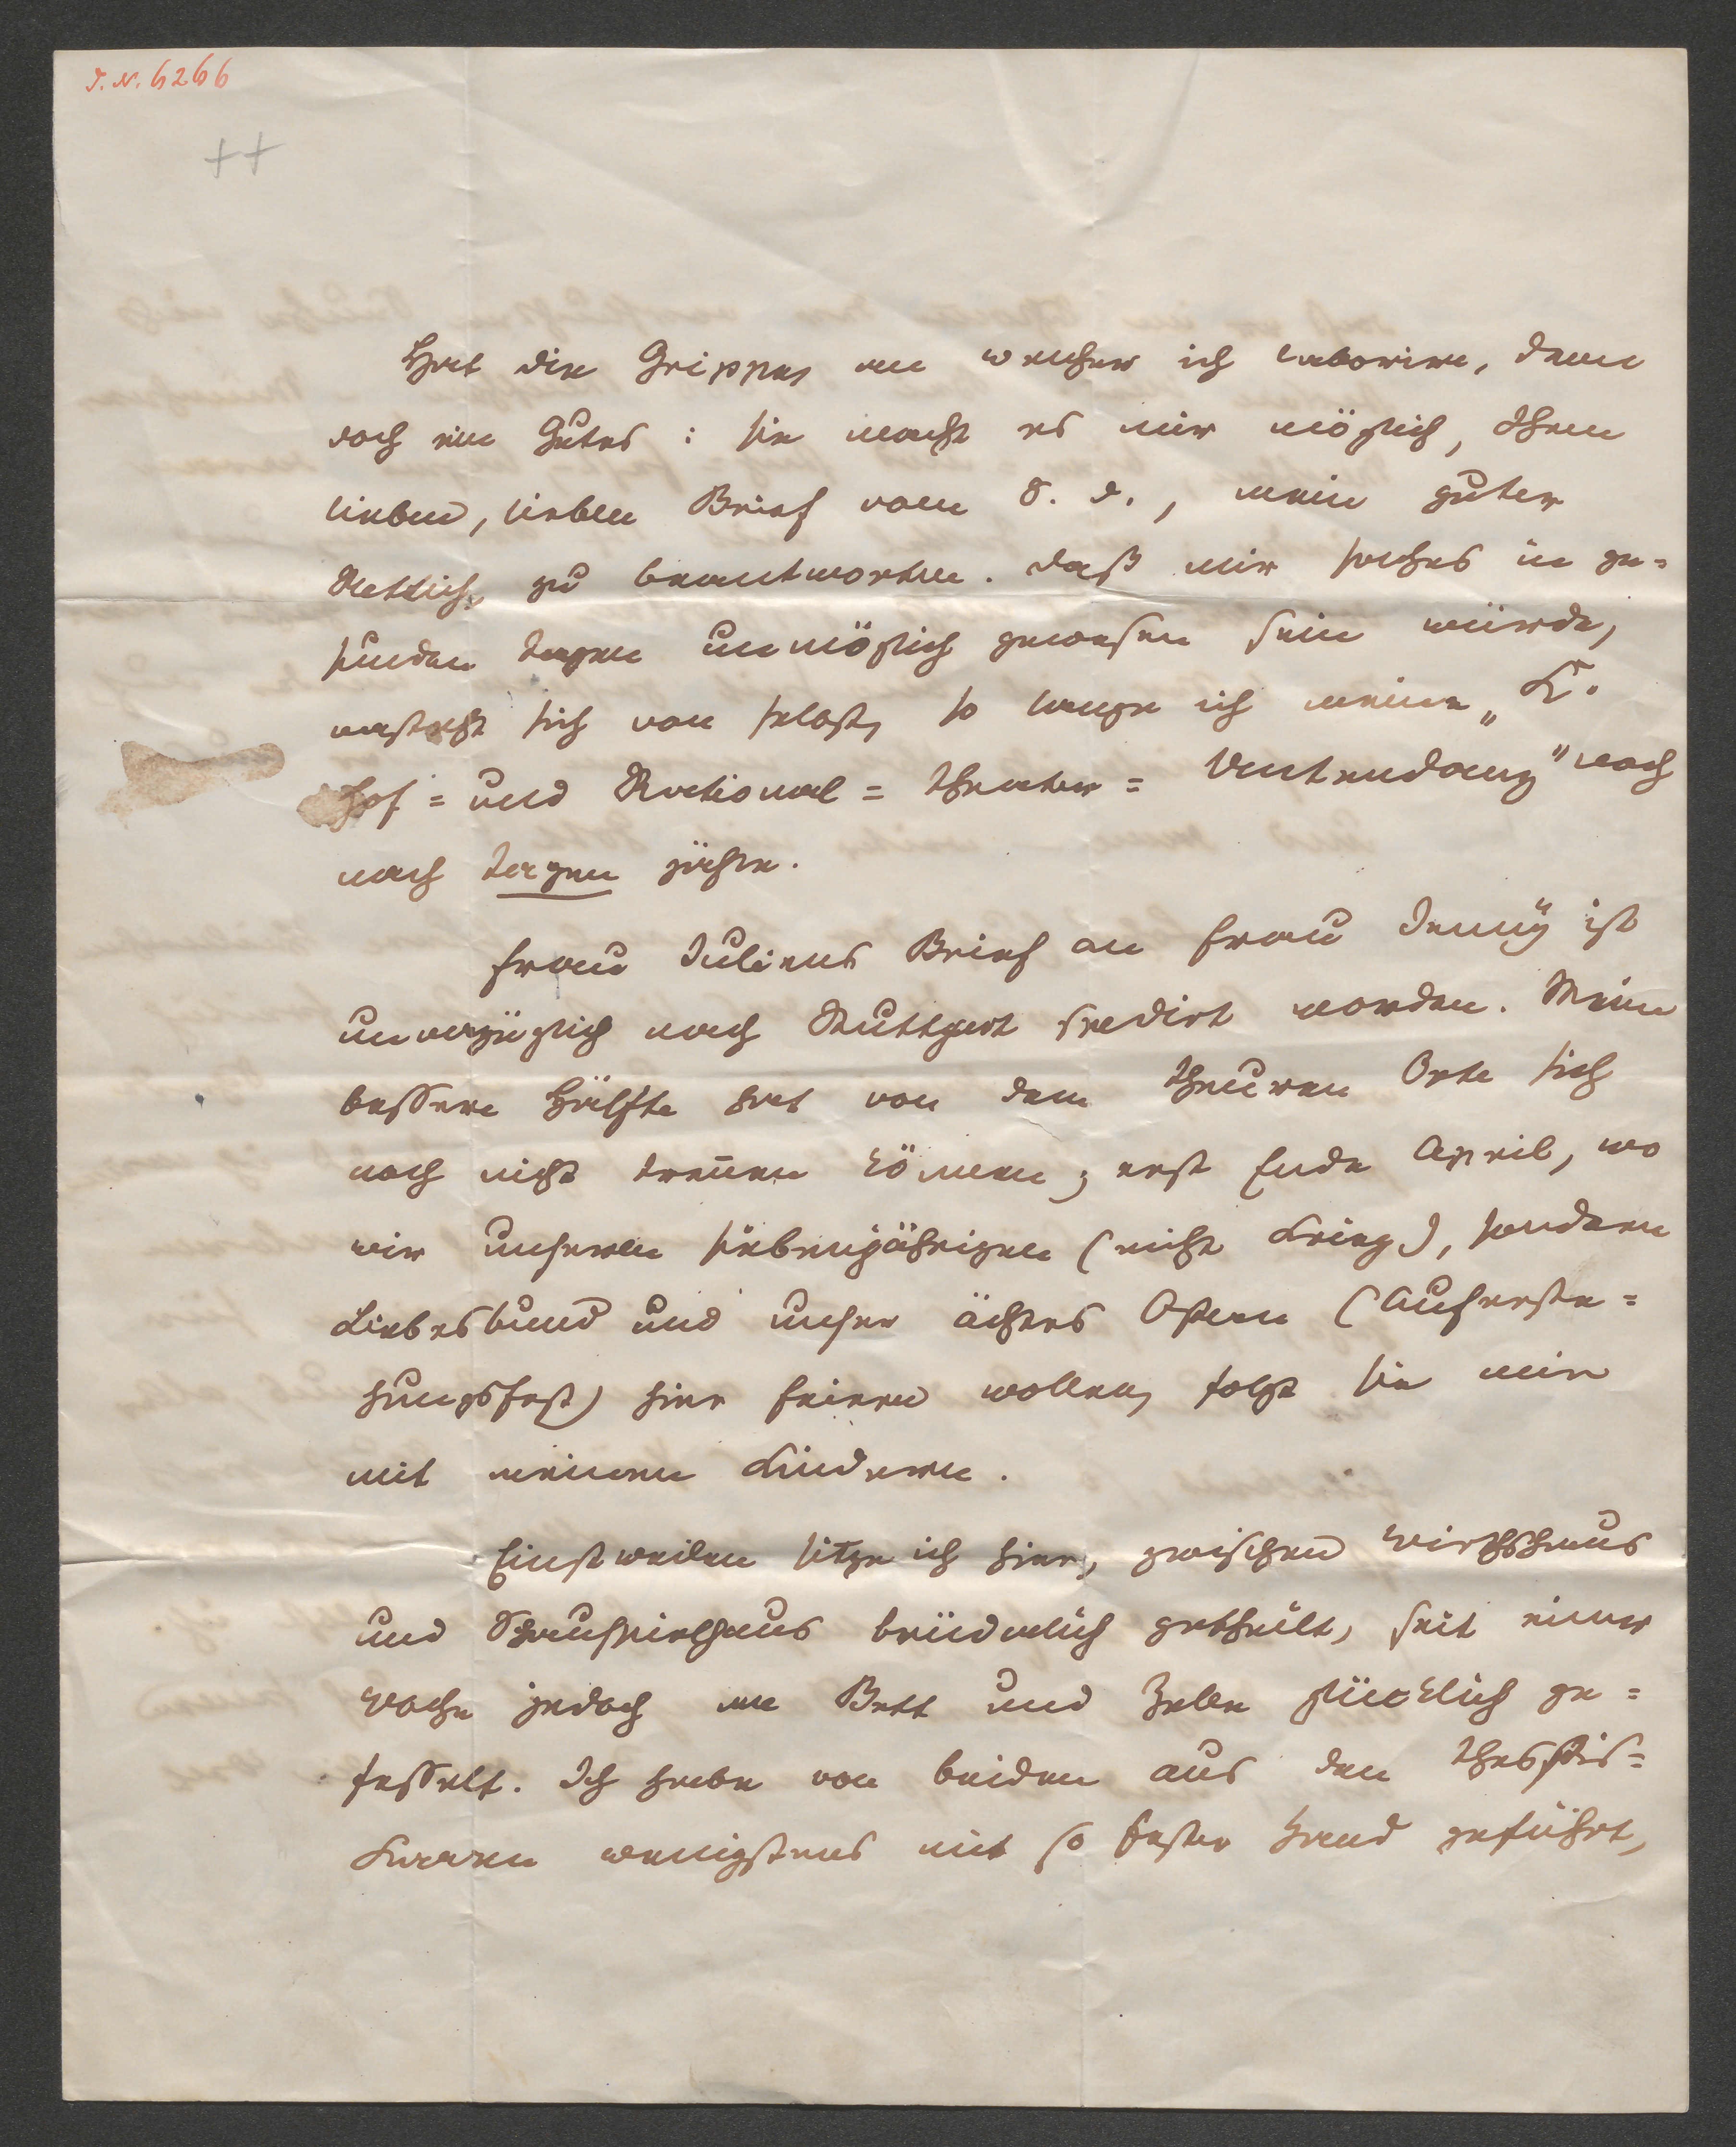 I. N. 6266
++
Hat die Grippe, an welcher ich laborire, denn
doch ein Gutes: sie macht es mir möglich, Ihren
lieben, lieben Brief vom 8. d., mein guter
Rettich, zu beantworten. Daß mir solches in ge=
sunden Tagen unmöglich gewesen sein würde,
versteht sich von selbst, so lange ich meine „K.
Hof= und National=Theater=Intendanz" noch
nach Tagen zähle.
Frau Juliens Brief an Frau Jenny ist
unverzüglich nach Stuttgart spedirt worden. Meine
bessere Hälfte hat von dem theuren Orte sich
noch nicht treñen können; erst Ende April, wo
wir unseren siebenjährigen (nicht Krieg), sondern
Liebesbund und unser ächtes Ostern (Auferste=
hungsfest) hier feiern wollen, folgt sie mir
mit meinen Kindern.
Einstweilen sitze ich hier, zwischen Wirthshaus
und Schauspielhaus brüderlich getheilt, seit einer
Woche jedoch an Bett und Zelle glücklich ge=
fesselt. Ich habe von beiden aus den Thespis=
Karren wenigstens mit so fester Hand geführt,